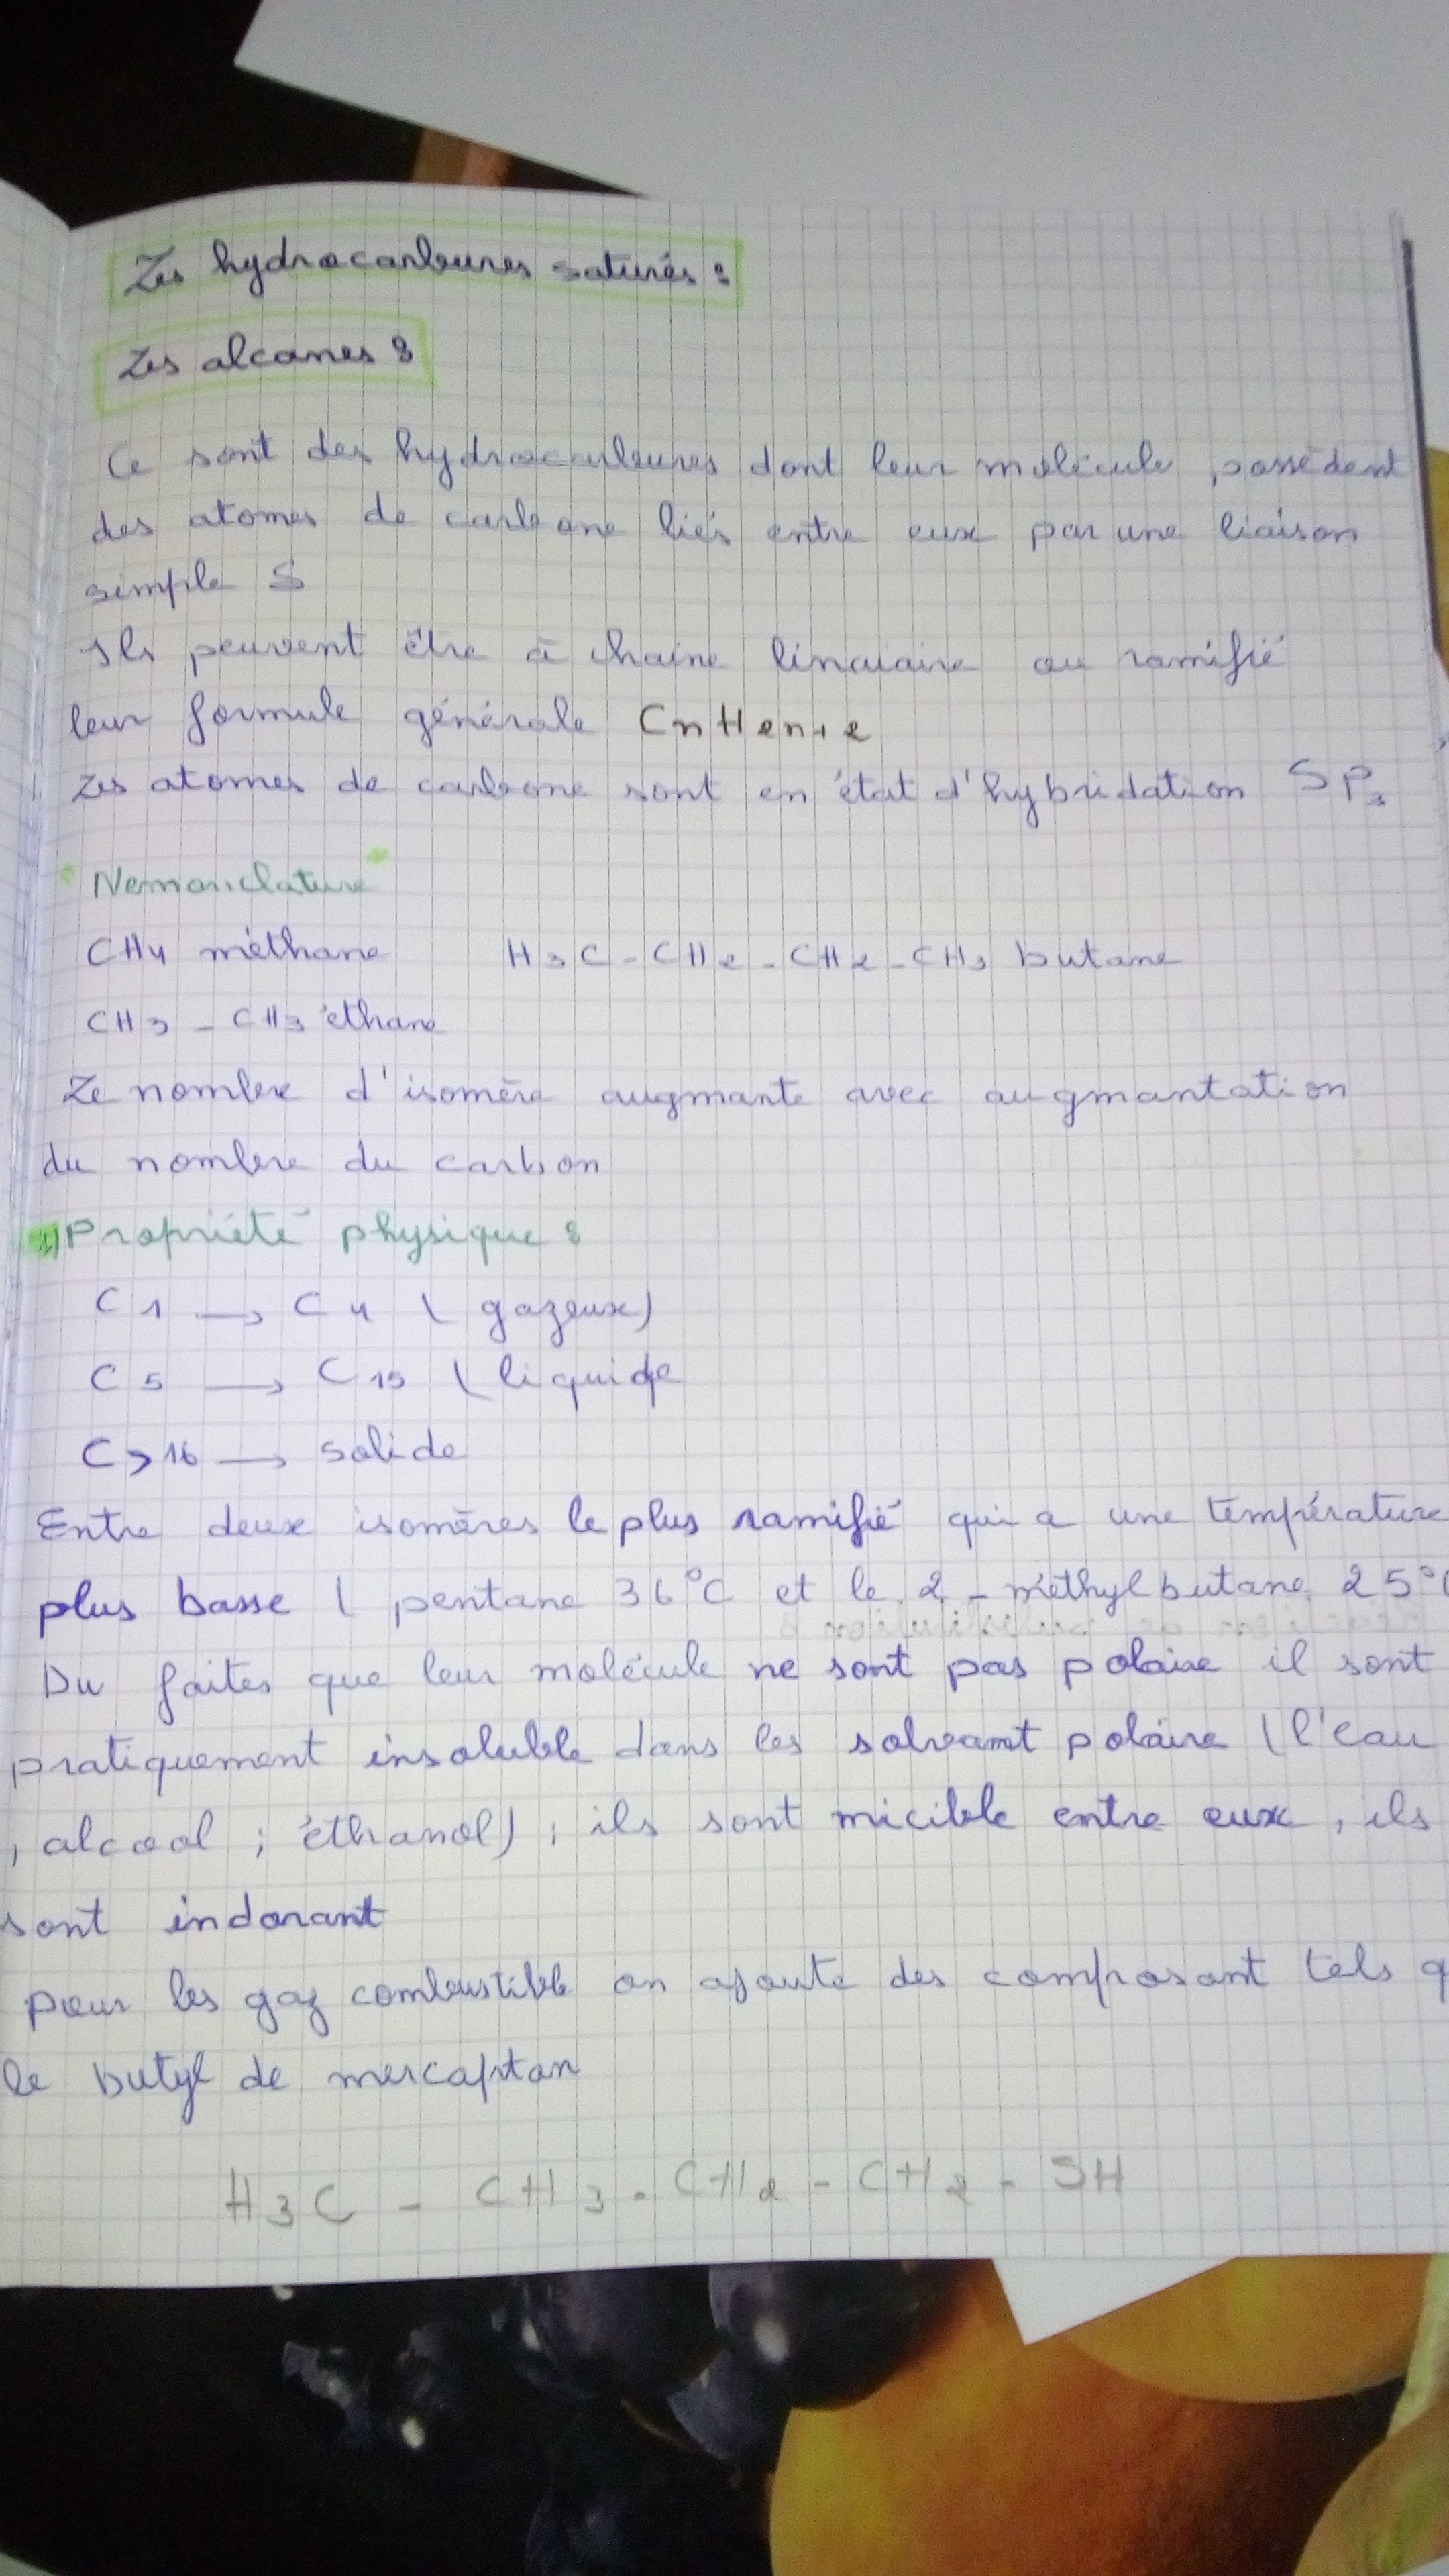 Les hydrocarbures saturés :
Les alcanes :
Ce sont des hydrocarbures dont leur molécule possèdent
des atomes de carbone liés entre eux par une liaison
simple S
Ils peuvent être à chaine linaiaire ou ramifié
leur formule générale CnH2n+2
Les atomes de carbone sont en état d'hybridation SP3
"Nemonclature"
CH4 méthane H3C - CH2 - CH2 - CH3 butane
CH3 - CH3 éthane
Le nombre d'isomère augmante avec augmantation
du nombre du carbon
1) Propriété physique :
C1 → C4 ( gazeux)
C5 → C15 ( liquide
C > 16 → solide
Entre deux isomères le plus ramifié qui a une température
plus basse ( pentane 36°C et le 2 - méthylbutane 25°C
Du faites que leur molécule ne sont pas polaire il sont
pratiquement insoluble dans les solvant polaire (l'eau
, alcool ; éthanol) ; ils sont micible entre eux, ils
sont indorant
pour les gaz combustible on ajoute des composant tels q
le butyl de mercaptan
H3C - CH3 - CH2 - CH2 - SH